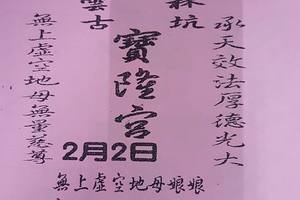 承天效法厚德光大
坑
寶陸宮
雲古
無上虛空地母無量慈尊
2月2日
無上虛空地母娘娘